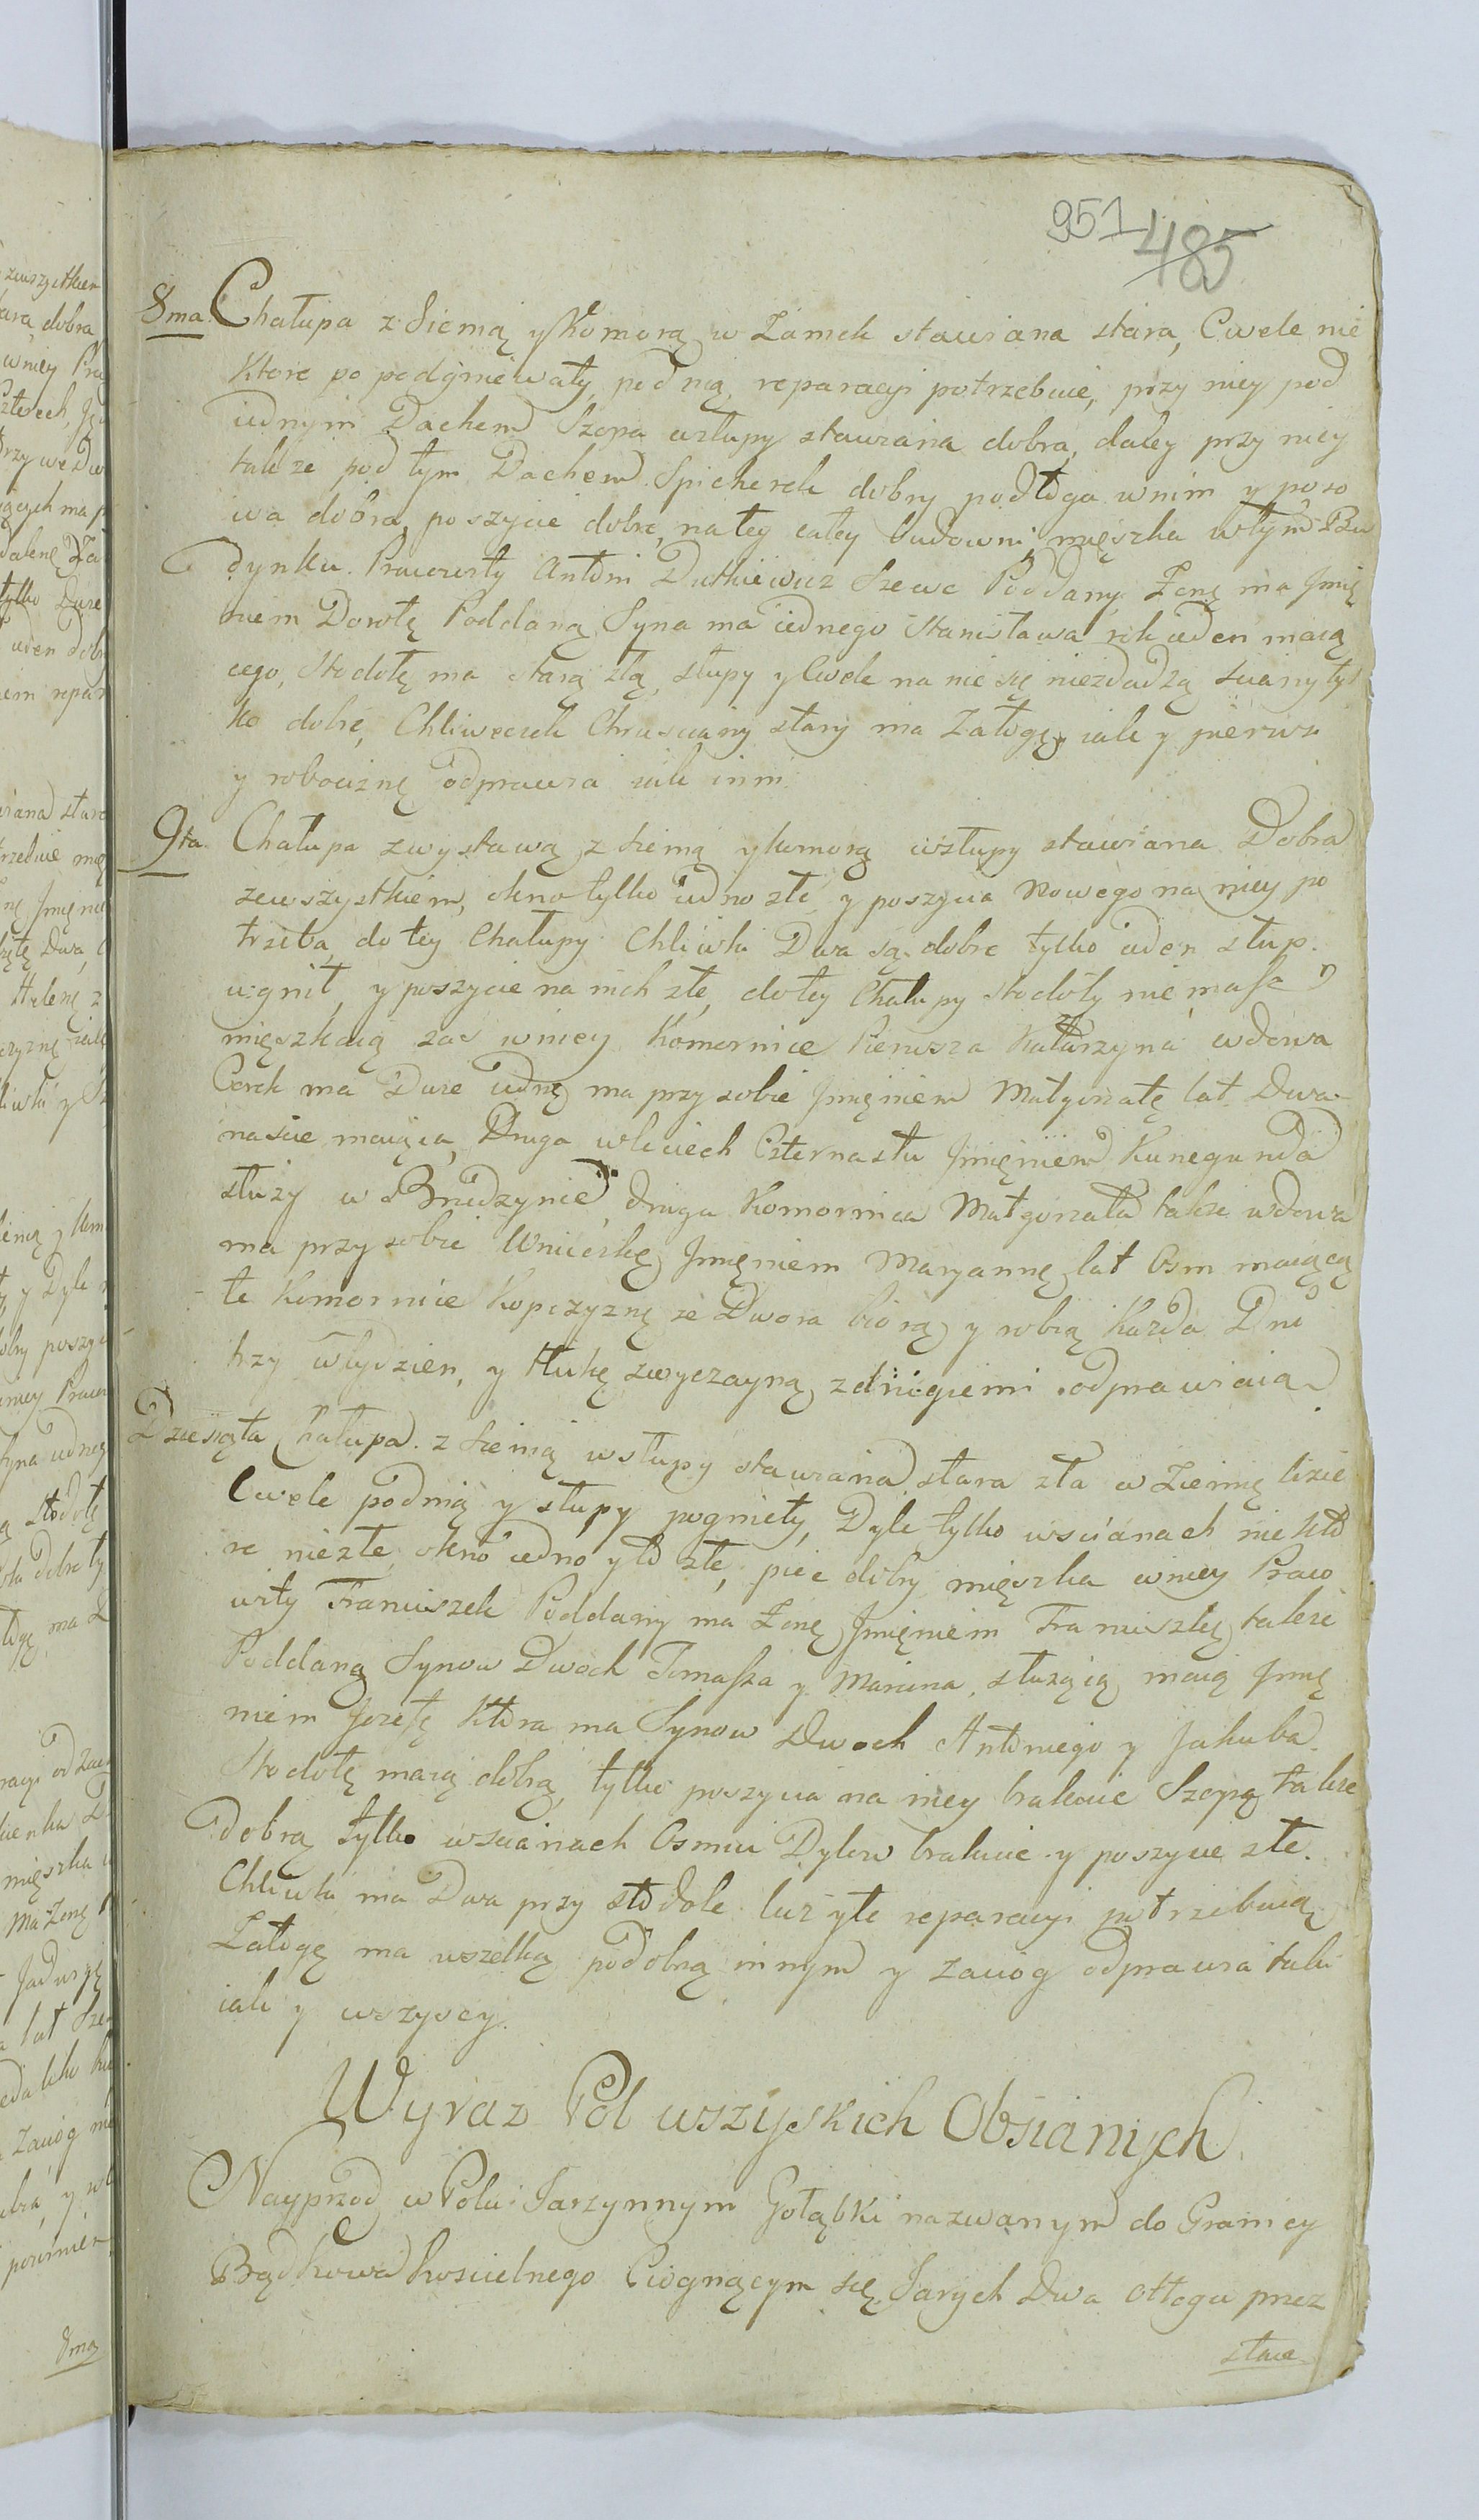 951 485
8ma. Chałupa z Siemią y Komorą w Zamek stawiana stara, Cwele nie
ktore po podgniewały pod nią, reparacyi potrzebuie, przy niey pod
iednym Dachem Szopa wsłupy stawiana dobra, daley przy niey
także pod tym Dachem Spicherek dobry podłoga wnim y poso
wa dobra, poszycie dobre, na tey całey budowni mięszka wtym Bu
dynku Pracowity Antoni Dutkiewicz Szewc Poddany, Zonę ma Jmię
niem Dorotę Poddaną, Syna ma iednego Stanisława rok ieden maią
cego, Stodołę ma starą złą, słupy y Cwele na nic się niezdadzą scianytyl
ko dobre, Chliweczek Chruscany stary ma Załogę iak y pierwsi
y robociznę odprawia iak inni.
9ta. Chałupa zwystawą z Siemią ykomorą wsłupy stawiana Dobra
zewszystkiem, okno tylko iedno złe y poszycia Nowego na niey po
trzeba, do tey Chałupy Chliwki Dwa są dobre tylko ieden słup
ugnił y poszycie na nich złe, dotey Chałupy stodoły nie masz
mięszkaią zas wniey Komornice Pierwsza Katarzyna wdowa
Corek ma Dwie iednę ma przy sobie Jmięniem Małgorzatę lat Dwa-
nascie maiącą, Druga wleciech Czternastu Jmięniem Kunegunda
służy w Brudzynie, druga Komornica Małgorzata także wdowa
ma przy sobie Wnuczkę Jmięniem Maryannę lat Osm maiącą
te Komornice Kopczyznę ze Dwora biorą y robią Każda Dni
trzy wtydzien, y tłukę zwyczayną zdrugiemi odprawiaią
Dziesięta Chałupa z Siemią wsłupy stawiana stara zła w Ziemię lizie
Cwele podnią y słupy pogniełły, Dyle tylko wscianach niekto
re niezłe, okno iedno y to złe, piec dobry mięszka wniey Praco
wity Franciszek Poddany ma Zonę Jmięniem Franciszkę także
Poddaną Synow Dwoch Tomasza y Marcina, służącą maią Jmię
niem Jozefę Która ma Synow Dwoch Antoniego y Jakuba.
Stodołę maią dobrą, tylko poszycia na niey brakuie Szopą także
dobrą tylko wscianach Osmiu Dylow brakuie y poszycie złe.
Chliwki ma Dwa przy stodole lecz y te reparacyi potrzebuią
Załogę ma wszelką podobną innym y Zaciog odprawia taki
iak y wszyscy.
Wyraz Pól wszyskich Obsianych
Nayprzod w Polu Jarzynnym Gołąbki nazwanym do Granicy
Bądkowa Koscielnego Ciognącym się Jarych Dwa Ottogu przez
stare